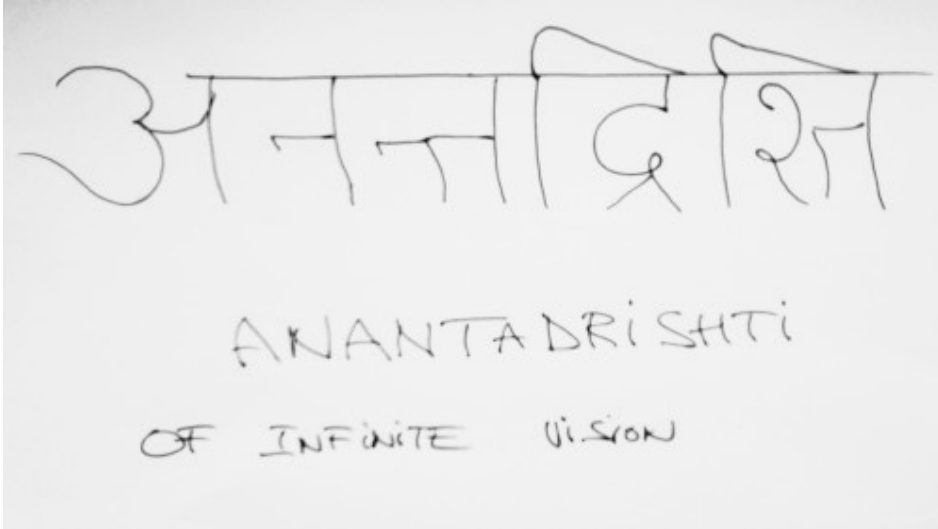 अनन्तद्रिश्ति
ANANTADRiSHTi
OF INFiNiTE ViSiON